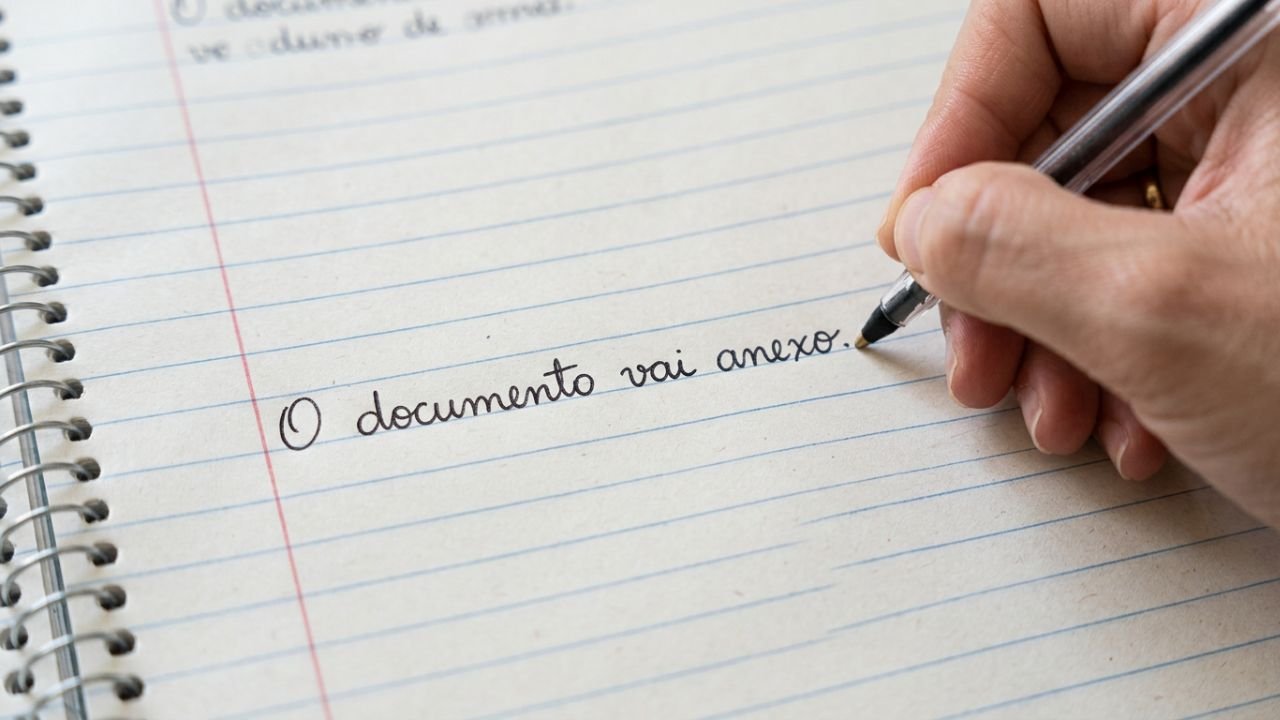 O documen
de
O documento vai anexo.